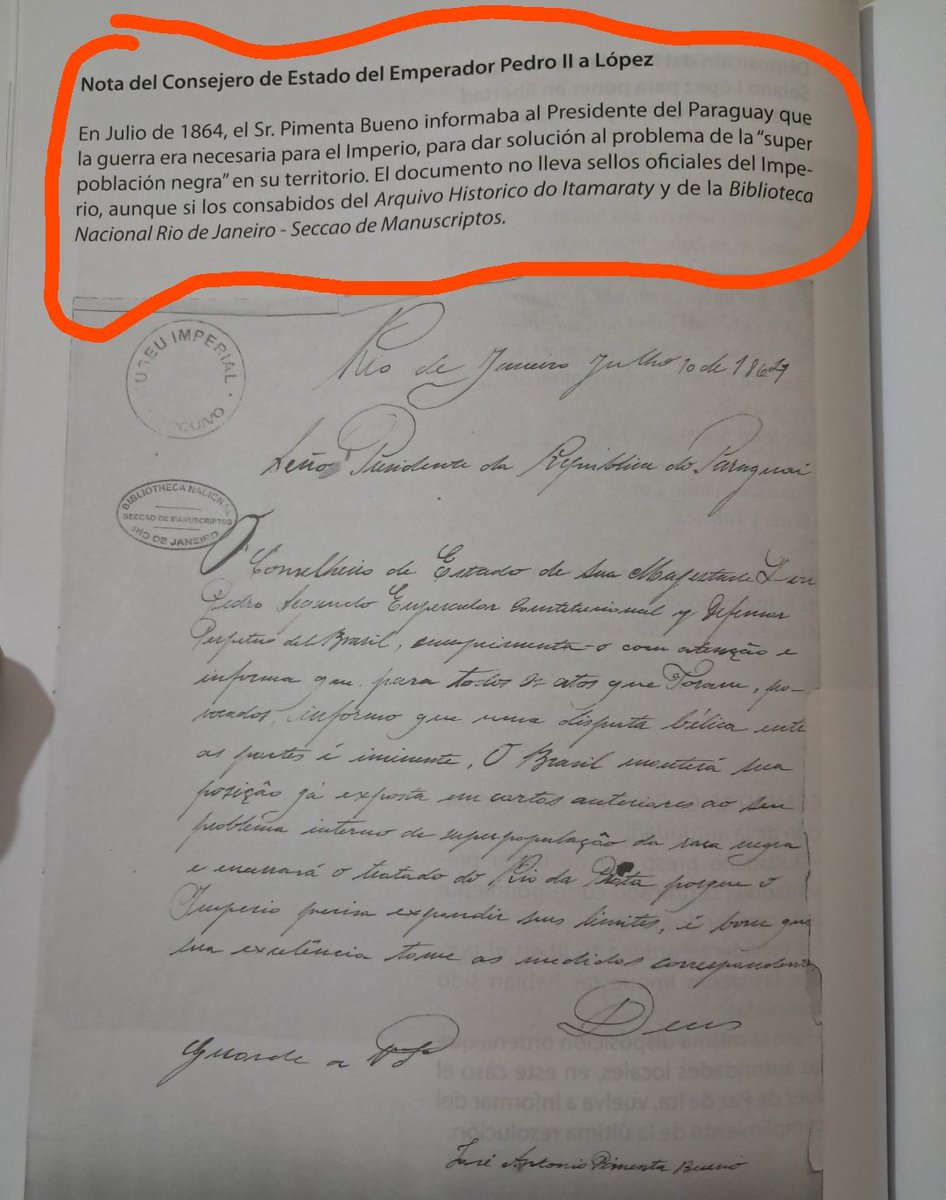 Nota del Consejero de Estado del Emperador Pedro II a López
En Julio de 1864, el Sr. Pimenta Bueno informaba al Presidente del Paraguay que
la guerra era necesaria para el Imperio, para dar solución al problema de la "super
población negra" en su territorio. El documento no lleva sellos oficiales del Impe-
rio, aunque si los consabidos del Arquivo Historico do Itamaraty y de la Biblioteca
Nacional Rio de Janeiro - Seccao de Manuscriptos.
MUSEU IMPERIAL
Rio de Janeiro Julho 10 de
Presidente da Republica do Paraguai
BIBLIOTHECA NACIONAL
SECCAO DE MANUSCRIPTOS
RIO DE JANEIRO
O Conselheiro de Estado de sua Magestade
Pedro Segundo Emperador Constitucional y Defensor
Perpetuo del Brasil, com atenção e
informa que para todos os atos que
informo que uma disputa bélica entre
as partes é iminente, O Brasil sua
posição já exposta em cartas anteriores ao seu
problema interno de superpopulação da raça negra
e o tratado do Rio da Prata porque o
Imperio precisa expandir seus limites, é bom que
sua excelência tome as medidas
Deus
Guarde a
José Antonio Pimenta Bueno